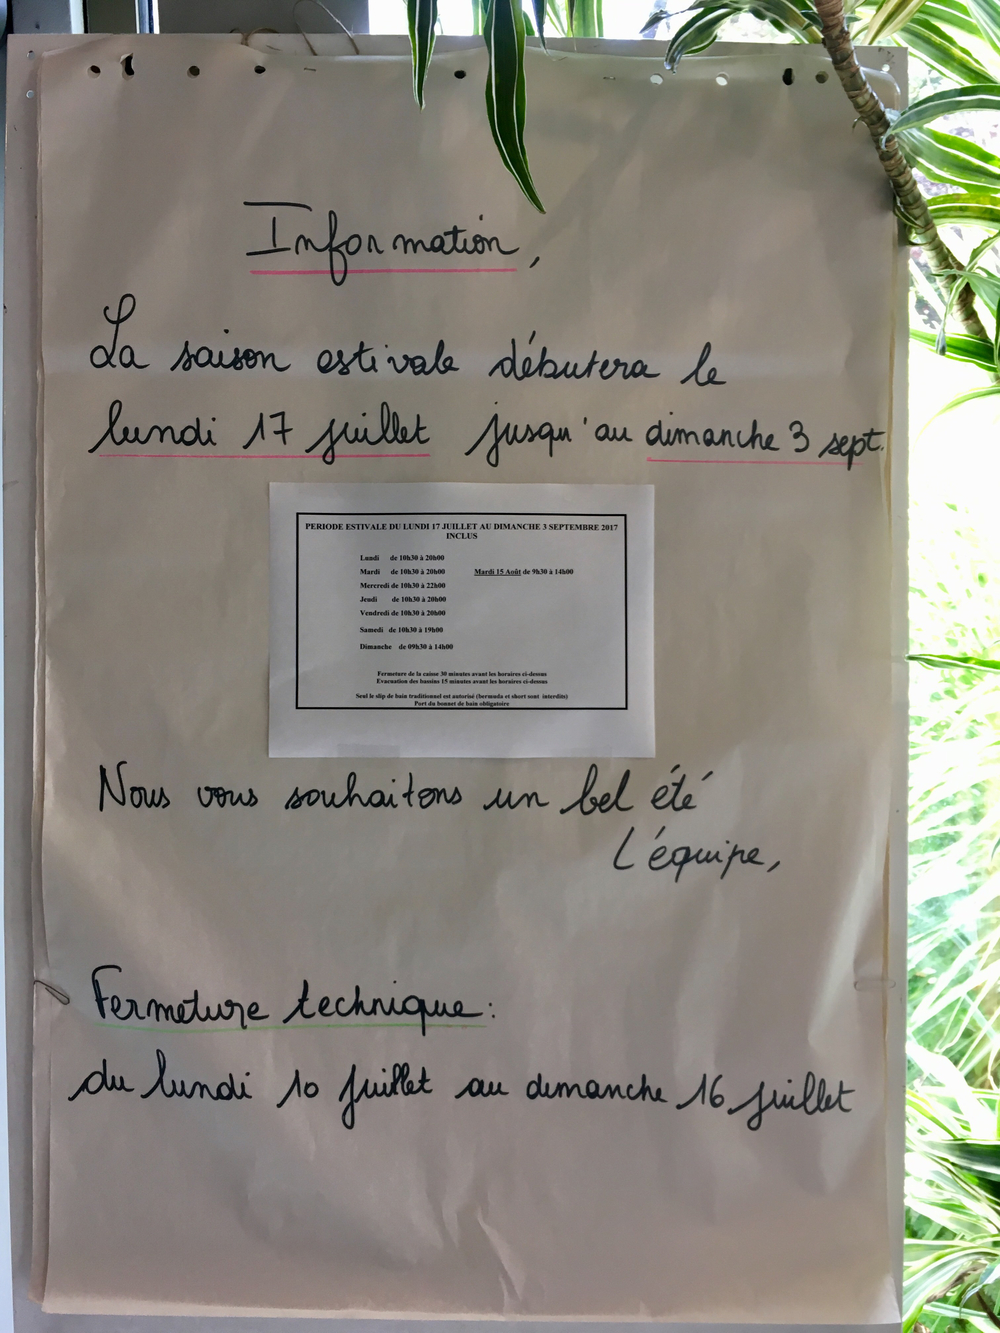 Information,
La saison estivale débutera le
lundi 17 juillet jusqu'au dimanche 3 sept.
PERIODE ESTIVALE DU LUNDI 17 JUILLET AU DIMANCHE 3 SEPTEMBRE 2017
INCLUS
Lundi de 10h30 à 20h00
Mardi de 10h30 à 20h00 Mardi 15 Août de 9h30 à 14h00
Mercredi de 10h30 à 22h00
Jeudi de 10h30 à 20h00
Vendredi de 10h30 à 20h00
Samedi de 10h30 à 19h00
Dimanche de 09h30 à 14h00
Fermeture de la caisse 30 minutes avant les horaires ci-dessus
Evacuation des bassins 15 minutes avant les horaires ci-dessus
Seul le slip de bain traditionnel est autorisé (bermuda et short sont interdits)
Port du bonnet de bain obligatoire
Nous vous souhaitons un bel été
L'équipe,
Fermeture technique :
du lundi 10 juillet au dimanche 16 juillet